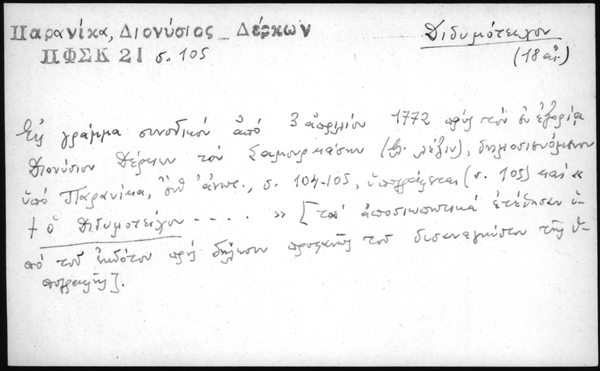 Παρανίκα, Διονύσιος Δέρκων
ΠΦΣΚ 21 σ. 105
Διδυμότειχον
(18 αἰ.)
Εἰς γράμμα συνοδικόν ἀπό 3 ἀπριλίου 1772 πρός τόν ἐν ἐξορίᾳ
Διονύσιον Δέρκων τόν Σαμουρκάσην (βλ. λέξιν), δημοσιευόμενον
ὑπό Παρανίκα, ἔνθ' ἀνωτ., σ. 104-105, ὑπογράφεται (σ. 105) καί «
† ὁ Διδυμοτείχου - - - - . » [τά ἀποσιωπητικά ἐτέθησαν ὑ-
πό τοῦ ἐκδότου πρός δήλωσιν προφανῶς τοῦ δυσαναγνώστου τῆς ὑ-
πογραφῆς].